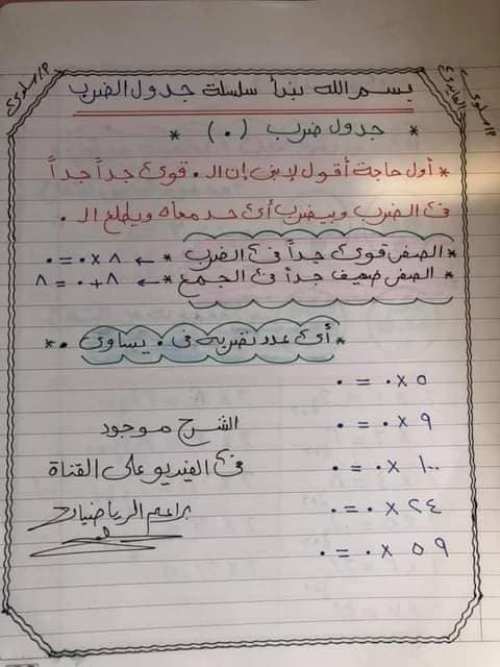 أ/ سلوى
بسم الله نبدأ سلسلة جدول الضرب
* جدول ضرب (٠) *
* أول حاجة أقول لابنى إن الـ ٠ قوى جداً جداً
فى الضرب وبيضرب أى حد معاه ويطلع الـ ٠
* الصفر قوى جداً فى الضرب * ← ٨ × ٠ = ٠
* الصفر ضعيف جداً فى الجمع * ← ٨ + ٠ = ٨
* أى عدد نضربه فى ٠ يساوى ٠ *
٥ × ٠ = ٠
٩ × ٠ = ٠
الشرح موجود
١٠٠ × ٠ = ٠
فى الفيديو على القناة
٢٤ × ٠ = ٠
براعم الرياضيات
٥٩ × ٠ = ٠